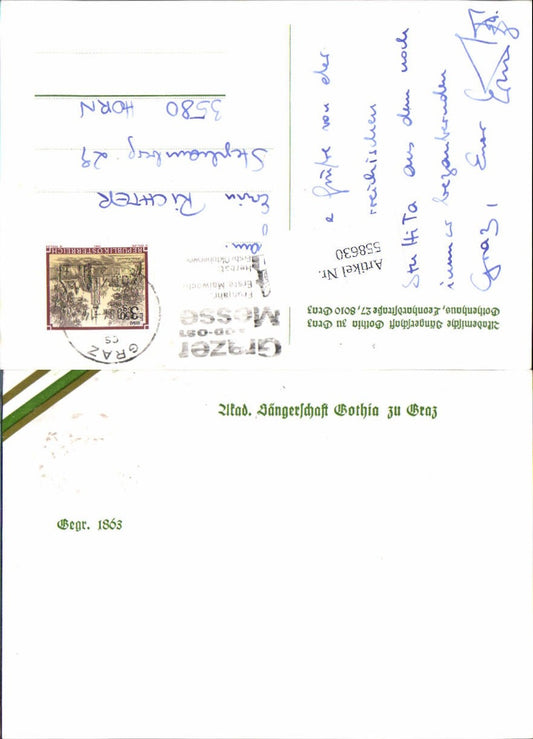 e Grüße von der
Stuttita aus dem noch
immer bezaubernden
Graz, Euer
Artikel Nr.
558630
Akademische Sängerschaft Gothia zu Graz
Gothenhaus, Leonhardstraße 27, 8010 Graz
Grazer
Messe
Frühjahr
Erste Maiwoche
Herbst
GRAZ
REPUBLIK ÖSTERREICH
An.
Erwin RICHTER
Stephanberg. 29
3580 HORN
Akad. Sängerschaft Gothia zu Graz
Gegr. 1863